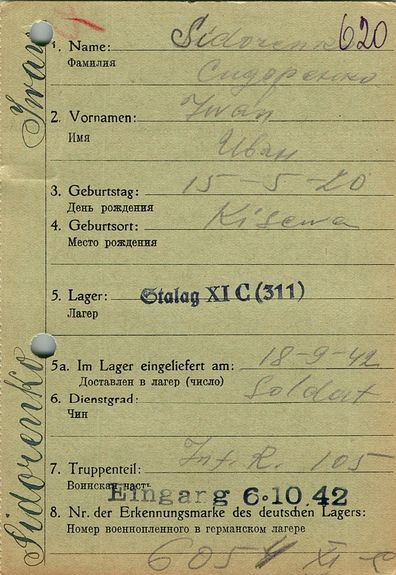 Sidorenko Iwan
620
1. Name: Sidorenko
Фамилия
Сидоренко
2. Vornamen: Iwan
Имя
Иван
3. Geburtstag: 15-5-20
День рождения
4. Geburtsort: Kisewa
Место рождения
5. Lager: Stalag XI C (311)
Лагер
5a. Im Lager eingeliefert am: 18-9-42
Доставлен в лагер (число)
6. Dienstgrad: Soldat
Чин
7. Truppenteil: Inf. R. 105
Воинская часть
Eingang 6.10.42
8. Nr. der Erkennungsmarke des deutschen Lagers:
Номер военнопленного в германском лагере
XI-C